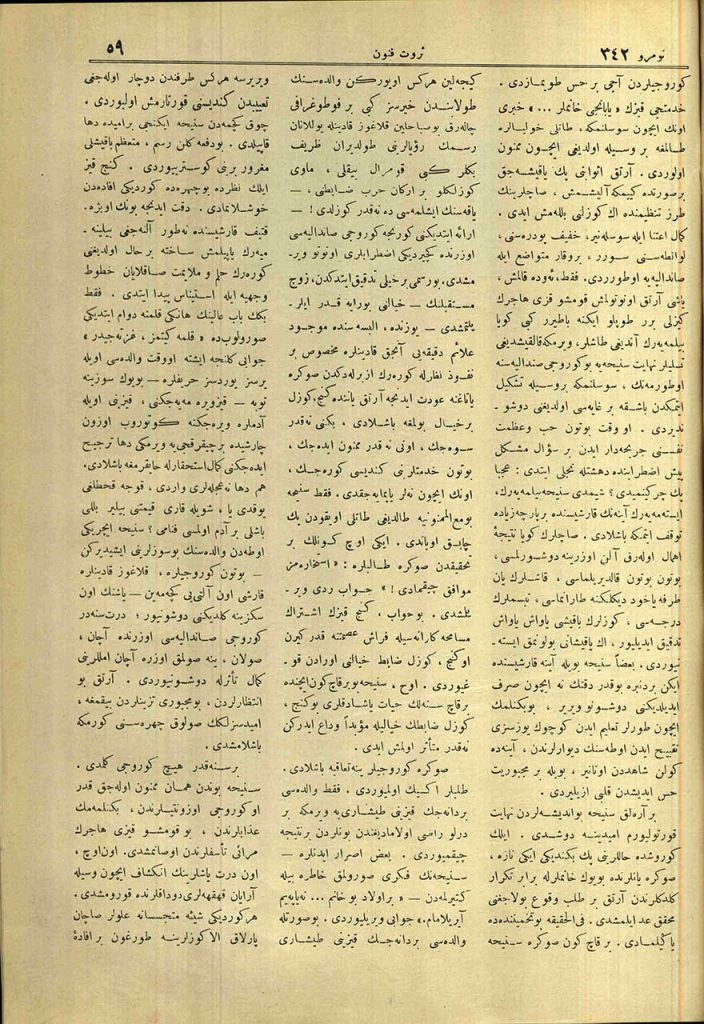 نومرو ٣٤٢
ثروت فنون
٥٩
كوروجيلردن آجى بر حس طويمازدى .
خدمتجى قيزك « يابانجى خانملر ... » خبرى
اونك ايچون سوسلنمكه، طاتلى خوليالره
طالمغه بر وسيله اولديغى ايچون ممنون
اولوردى . آرتق اثوابنى پك ياقيشه‌جق
برصورتده كييمكه آليشمش ، صاچلرينك
طرز تنظيمنده اك كوزلنى بللەمش ايدى .
كمال اعتنا ايله سوسله‌نير، خفيف پودره‌سنى،
لوانطه‌سنى سورر ، بروقار متواضع ايله
صانداليه‌يه اوطورردى . فقط، ئه‌وده قالمش ،
ياشى آرتق اونوتولمش قومشو قزى هاجرك
كيزلى برر طوپلو ايكنه باطيرر كبى كويا
بيلمه‌يه‌رك آتديغى طاشلر، ويرمكه قالقيشديغى
تسليلر نهايت سنيحه‌يه بو كوروجى صنداليه‌سنه
اوطورمه‌نك ، سوسلنمكه بروسيله تشكيل
ايتمكدن باشقه بر غايه‌سى اولديغنى دوشو ـ
نديردى . او وقت بوتون حب وعظمت
نفسنى جريحه‌دار ايدن بر سؤال مشكل
پيش اضطرابنده دهشتله تجلى ايتدى : عجبا
پك چركينميدى ؟ شيمدى سنيحه بيلمه‌يه‌رك،
ايسته‌مه‌يه‌رك آينه‌نك قارشيسنده برپارچه زياده
توقف ايتمكه باشلادى . صاچلرك كويا نتيجۀ
اهمال اوله‌رق آلن اوزرينه دوشورلمسى ،
بوتون بوتون قالديريلماسى ، قاشلرك يان
طرفه ياخود ديكلكنه طارانماسى ، تبسملرك
درجه‌سى ، كوزلرك باقيشى ياواش ياواش
تدقيق ايديليور ، اك ياقيشانى بولونمق ايسته ـ
نيوردى . بعضاً سنيحه بويله آينه قارشيسنده
ايكن بردنبره بوقدر دقتك نه ايچون صرف
ايديلديكنى دوشونويرير ، بويكنلمك
ايچون طورلر تعليم ايدن كوچوك يوزسزى
تقبيح ايدن اوطه‌سنك ديوارلرندن ، آينه‌ده
كولن شاهددن اوتانير ، بويله بر مجبوريت
حس ايديشدن قلبى ازيليردى .
بر آره‌لق سنيحه بوانديشه‌لردن نهايت
قورتوليورم اميدينه دوشدى . ايلك
كوروشده حاللرينى پك بكنديكى ايكى تازه ،
صوكره يانلرنده بويوك خانملرله برابر تكرار
كلدكلرندن آرتق بر طلب وقوع بولاجغنى
محقق عد ايلمشدى . فى‌الحقيقه بوتخميننده‌ده
ياكيلمادى . بر قاچ كون صوكره سنيحه
كيجه‌لين هركس اويوركن والده‌سنك
طولابندن خيرسز كبى بر فوطوغرافى
چاله‌رق بوصباحلين قلاغوز قادينله يوللانان
رسمك رؤيالرينى طولديران ظريف
بكلر كبى قومرال بيقلى ، ماوى
كوزلكلو بر اركان حرب ضابطى ، —
ياقه‌سنك ايشلمه‌سى ده نه‌قدر كوزلدى ! —
ارائه ايتديكنى كورنجه كوروجى صانداليه‌سى
اوزرنده كچيرديكى اضطرابلرى اونوتو وير ـ
مشدى. بورسمى برخيلى تدقيق ايتدكدن، زوج
مستقبلنك — خيالى بورايه قدر ايلر ـ
يلتمشدى — يوزنده ، البسه‌سنده موجود
علائم دقيقه‌يى آنجق قادينلره مخصوص بر
نفوذ نظرله كوره‌رك ازبرله‌دكدن صوكره
ياتاغنه عودت ايدنجه آرتق ياننده كنج، كوزل
برخيال بولمغه باشلادى ، بكنى نه‌قدر
سوه‌جك ، اونى نه‌قدر ممنون ايده‌جك ،
بوتون خدمتلرينى كنديسى كوره‌جك ،
اونك ايچون نه‌لر ياپمايه‌جقدى . فقط سنيحه
بومع‌الممنونيه طالديغى طاتلى اويقودن پك
چابق اوياندى . ايكى اوچ كونلك بر
تحقيقدن صوكره طالبلره : « استخاره‌مز
موافق چيقمادى ! » جواب ردى وير ـ
يلمشدى . بوجواب ، كنج قيزك اشتراك
مسامحه‌كارانه‌سيله فراش عصمتنه قدر كيرن
اوكنج ، كوزل ضابط خيالنى اورادن قو ـ
غيوردى . اوح ، سنيحه بو برقاچ كون ايچنده
بر قاچ سنه‌لك حيات ياشادقلرى بوكنج ،
كوزل ضابطك خياليله مؤبداً وداع ايدركن
نه‌قدر متأثر اولمش ايدى .
صوكره كوروجيلر ينه تعاقبه باشلادى .
طلبلر اكسيك اولميوردى . فقط والده‌سى
بردانه‌جك قيزينى طيشارى‌يه ويرمكه بر
درلو راضى اولامادیغندن بونلردن برنتيجه
چيقميوردى . بعض اصرار ايدنلره —
سنيحه‌نك فكرى صورولمق خاطره بيله
كتيرلمه‌دن — « براولاد بو خانم ... نه‌يا‌په‌يم
آيريلامام. » جوابى ويريليوردى . بوصورتله
والده‌سى بردانه‌جك قيزينى طيشارى
ويريرسه هركس طرفندن دوچار اوله‌جغى
تعييبدن كنديسنى قورتارمش اوليوردى .
چوق كچمه‌دن سنيحه ايكنجى براميده دها
قاپيلدى . بودفعه كلن رسم ، متعظم باقيشلى
مغرور برينى كوستريوردى . كنج قيز
ايلك نظرده بوچهره‌ده كورديكى افاده‌دن
خوشلانمادى . دقت ايدنجه بونك اوبژه ـ
قتيفك قارشيسنده نه‌طور آله‌جغنى بيلينه ـ
ميه‌رك ياپيلمش ساخته بر حال اولديغنى
كوره‌رك حلم و ملايمت صاقلايان خطوط
وجهيه ايله استيناس پيدا ايتدى . فقط
بكك باب عالينك هانكى قلمنه دوام ايتديكى
صورولوب‌ده « قلمه كيتمز ، غزته‌جيدر »
جوابى كلنجه ايشته اووقت والده‌سى اويله
يرسز يوردسز حريفلره — بويوك سوزينه
توبه — قيزويره ميه‌جكنى ، قيزنى اويله
آدملره ويره‌جكنه كوتوروب اوزون
چارشيده برچيقرقجى‌يه ويرمكى دها ترجيح
ايده‌جكنى كمال استحقارله حايقرمغه باشلادى.
هم دها نه عجله‌لرى واردى ، قوجه قحطلغى
يوقدى يا ، شويله قارى قيمتنى بيلير بللى
باشلى بر آدم اولمسى فنامى ؟ سنيحه ايچريكى
اوطه‌دن والده‌سنك بوسوزلرينى ايشيديركن
— بوتون كوروجيلره ، قلاغوز قادينلره
قارشى اون آلتى‌يى كچمه‌ين — ياشنك اون
سكزينه كلديكنى دوشونيور ؛ درت سنه‌در
كوروجى صانداليه‌سى اوزرنده آچان ،
صولان ، ينه صولمق اوزره آچان امللرينى
كمال تأثرله دوشونيوردى . آرتق بو
انتظارلردن ، بومجبورى تزيينلردن بيقمغه ،
اميدسزلكك صولوق چهره‌سنى كورمكه
باشلامشدى .
برسنه‌قدر هيچ كوروجى كلمدى .
سنيحه بوندن همان ممنون اوله‌جق قدر
اوكوروجى اوزونتيلرندن ، بكنلمه‌مك
عذابلرندن ، بوقومشو قيزى هاجرك
مرائى تأسفلرندن اوصانمشدى. اون‌اوچ ،
اون درت ياشلرينك انكشاف ايچون وسيله
آرايان قهقهه‌لرى دوداقلرنده قورومشدى .
هركورديكى شيئه متجسسانه علولر صاچان
پارلاق الا كوزلرينه طورغون بر افادۀ